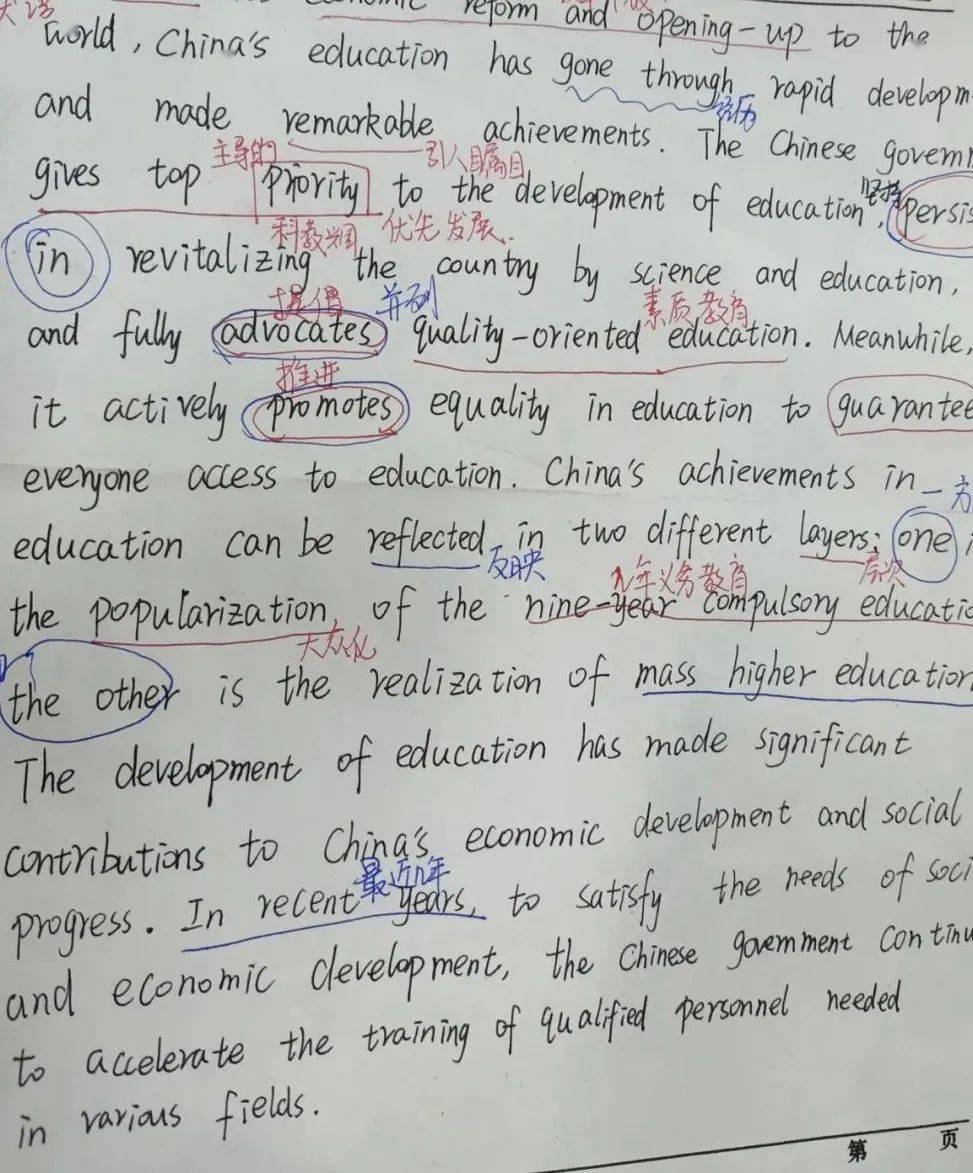 reform and opening-up to the
world, China's education has gone through rapid developm
经历
and made remarkable achievements. The Chinese governm
主导的 引人瞩目 坚持
gives top priority to the development of education, persis
科教兴国 优先发展.
in revitalizing the country by science and education,
提倡 并列 素质教育
and fully advocates quality-oriented education. Meanwhile,
推进
it actively promotes equality in education to guarantee
everyone access to education. China's achievements in
一方
education can be reflected in two different layers: one i
反映 九年义务教育 层次
the popularization of the nine-year compulsory educatio
大众化
the other is the realization of mass higher education
The development of education has made significant
contributions to China's economic development and social
最近几年
progress. In recent years, to satisfy the needs of soci
and economic development, the Chinese government continu
to accelerate the training of qualified personnel needed
in various fields.
第 页